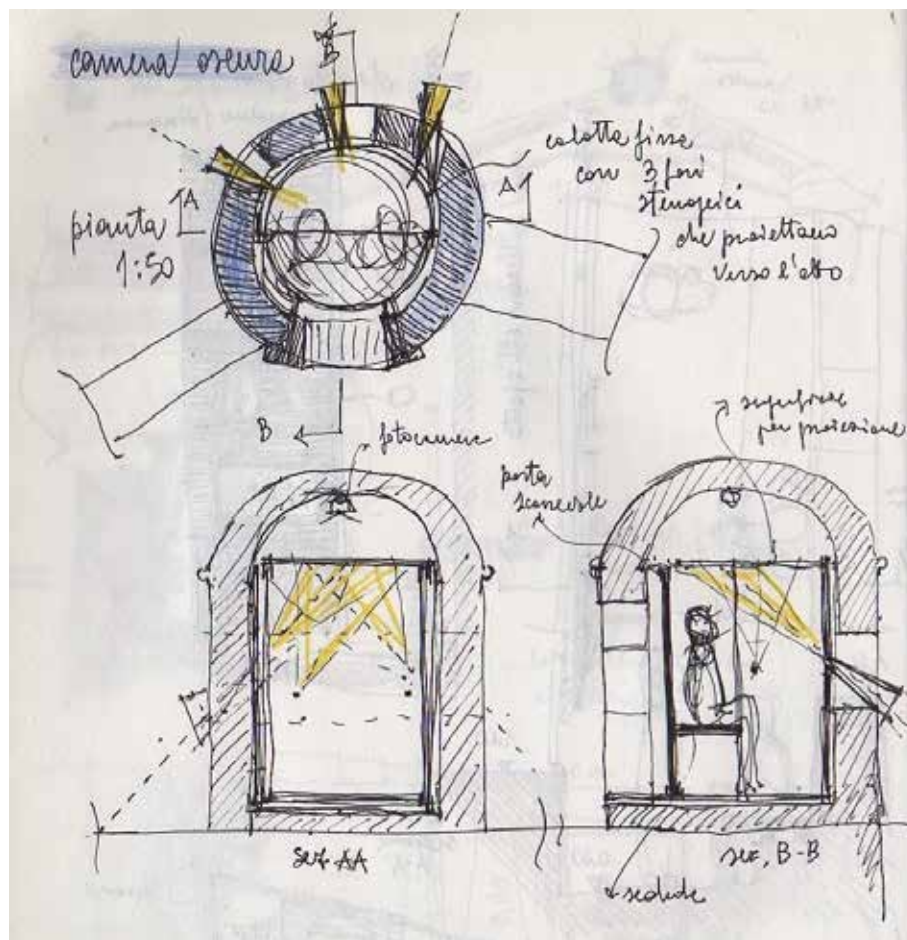 camera oscura
B
A
A
pianta
1:50
calotta fissa
con 3 fori
stenopeici
che proiettano
verso l'alto
B
fotocamere
porta
scorrevole
superficie
per proiezione
sez. AA
sez. B-B
sedute